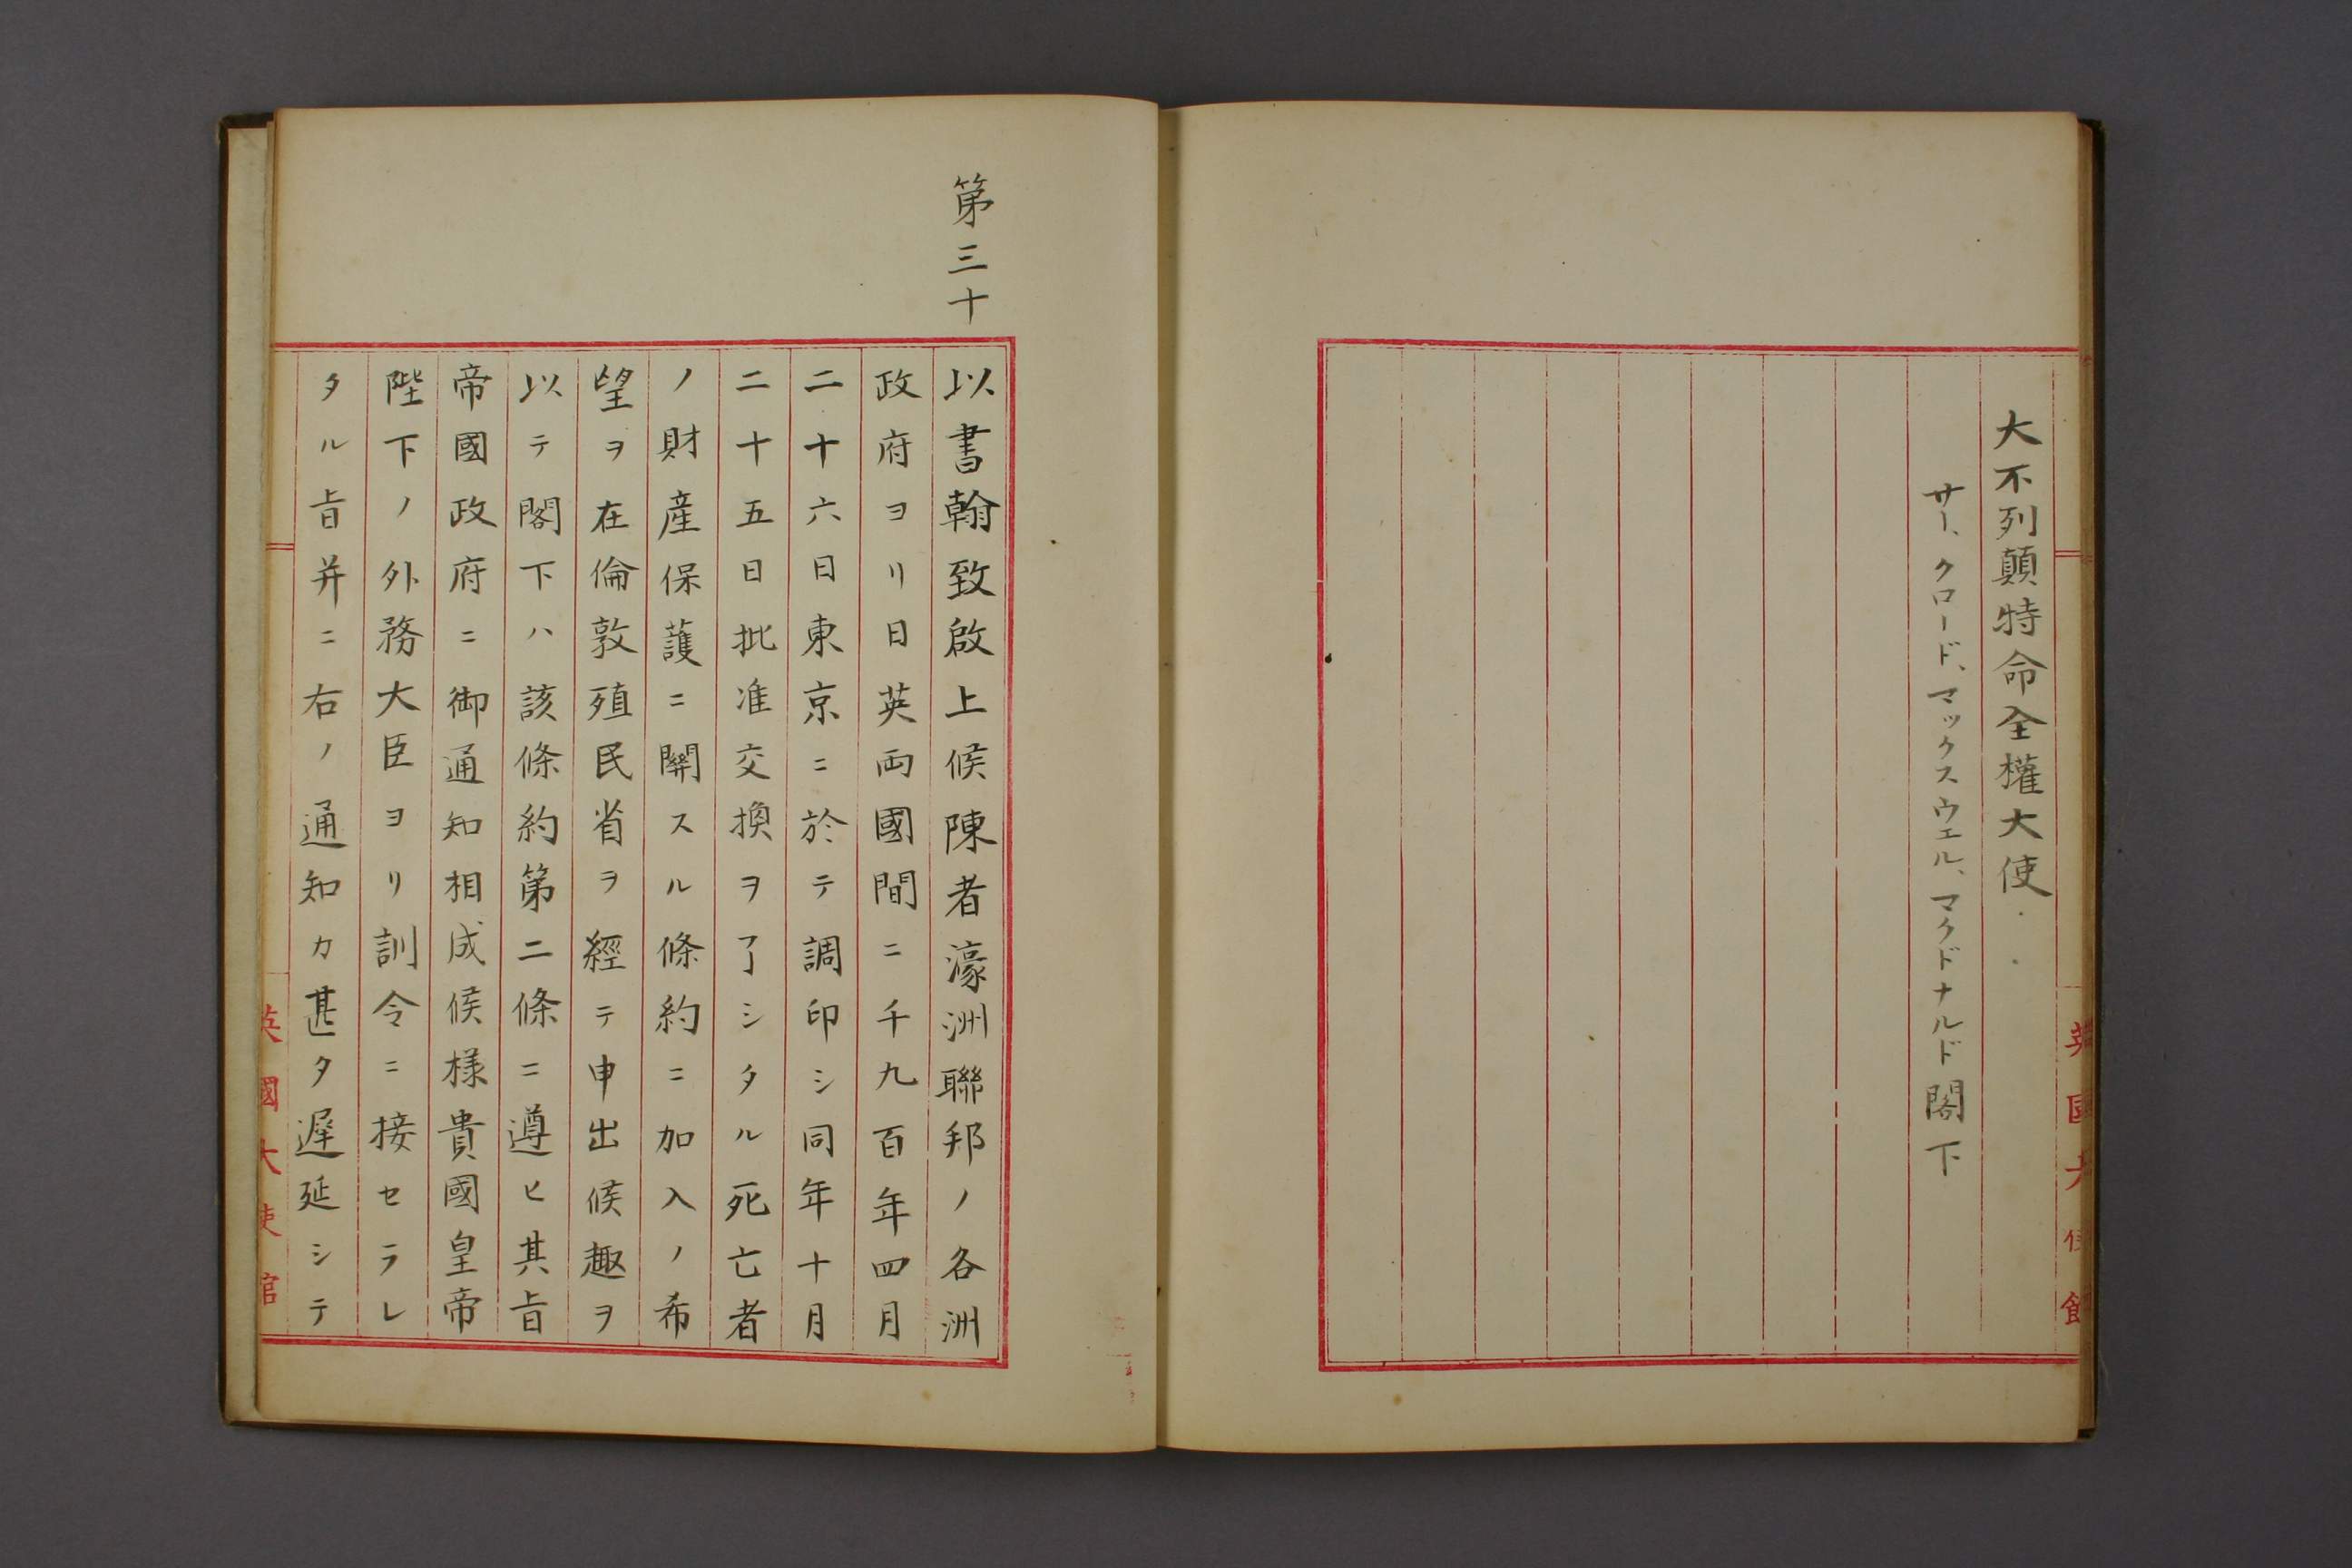 大不列顛特命全權大使
サー、クロード、マックスウエル、マクドナルド閣下
英國大使館
第三十
以書翰致啟上候陳者濠洲聯邦ノ各洲
政府ヨリ日英両國間ニ千九百年四月
二十六日東京ニ於テ調印シ同年十月
二十五日批准交換ヲ了シタル死亡者
ノ財産保護ニ關スル條約ニ加入ノ希
望ヲ在倫敦殖民省ヲ經テ申出候趣ヲ
以テ閣下ハ該條約第二條ニ遵ヒ其旨
帝國政府ニ御通知相成候様貴國皇帝
陛下ノ外務大臣ヨリ訓令ニ接セラレ
タル旨并ニ右ノ通知カ甚タ遅延シテ
英國大使館